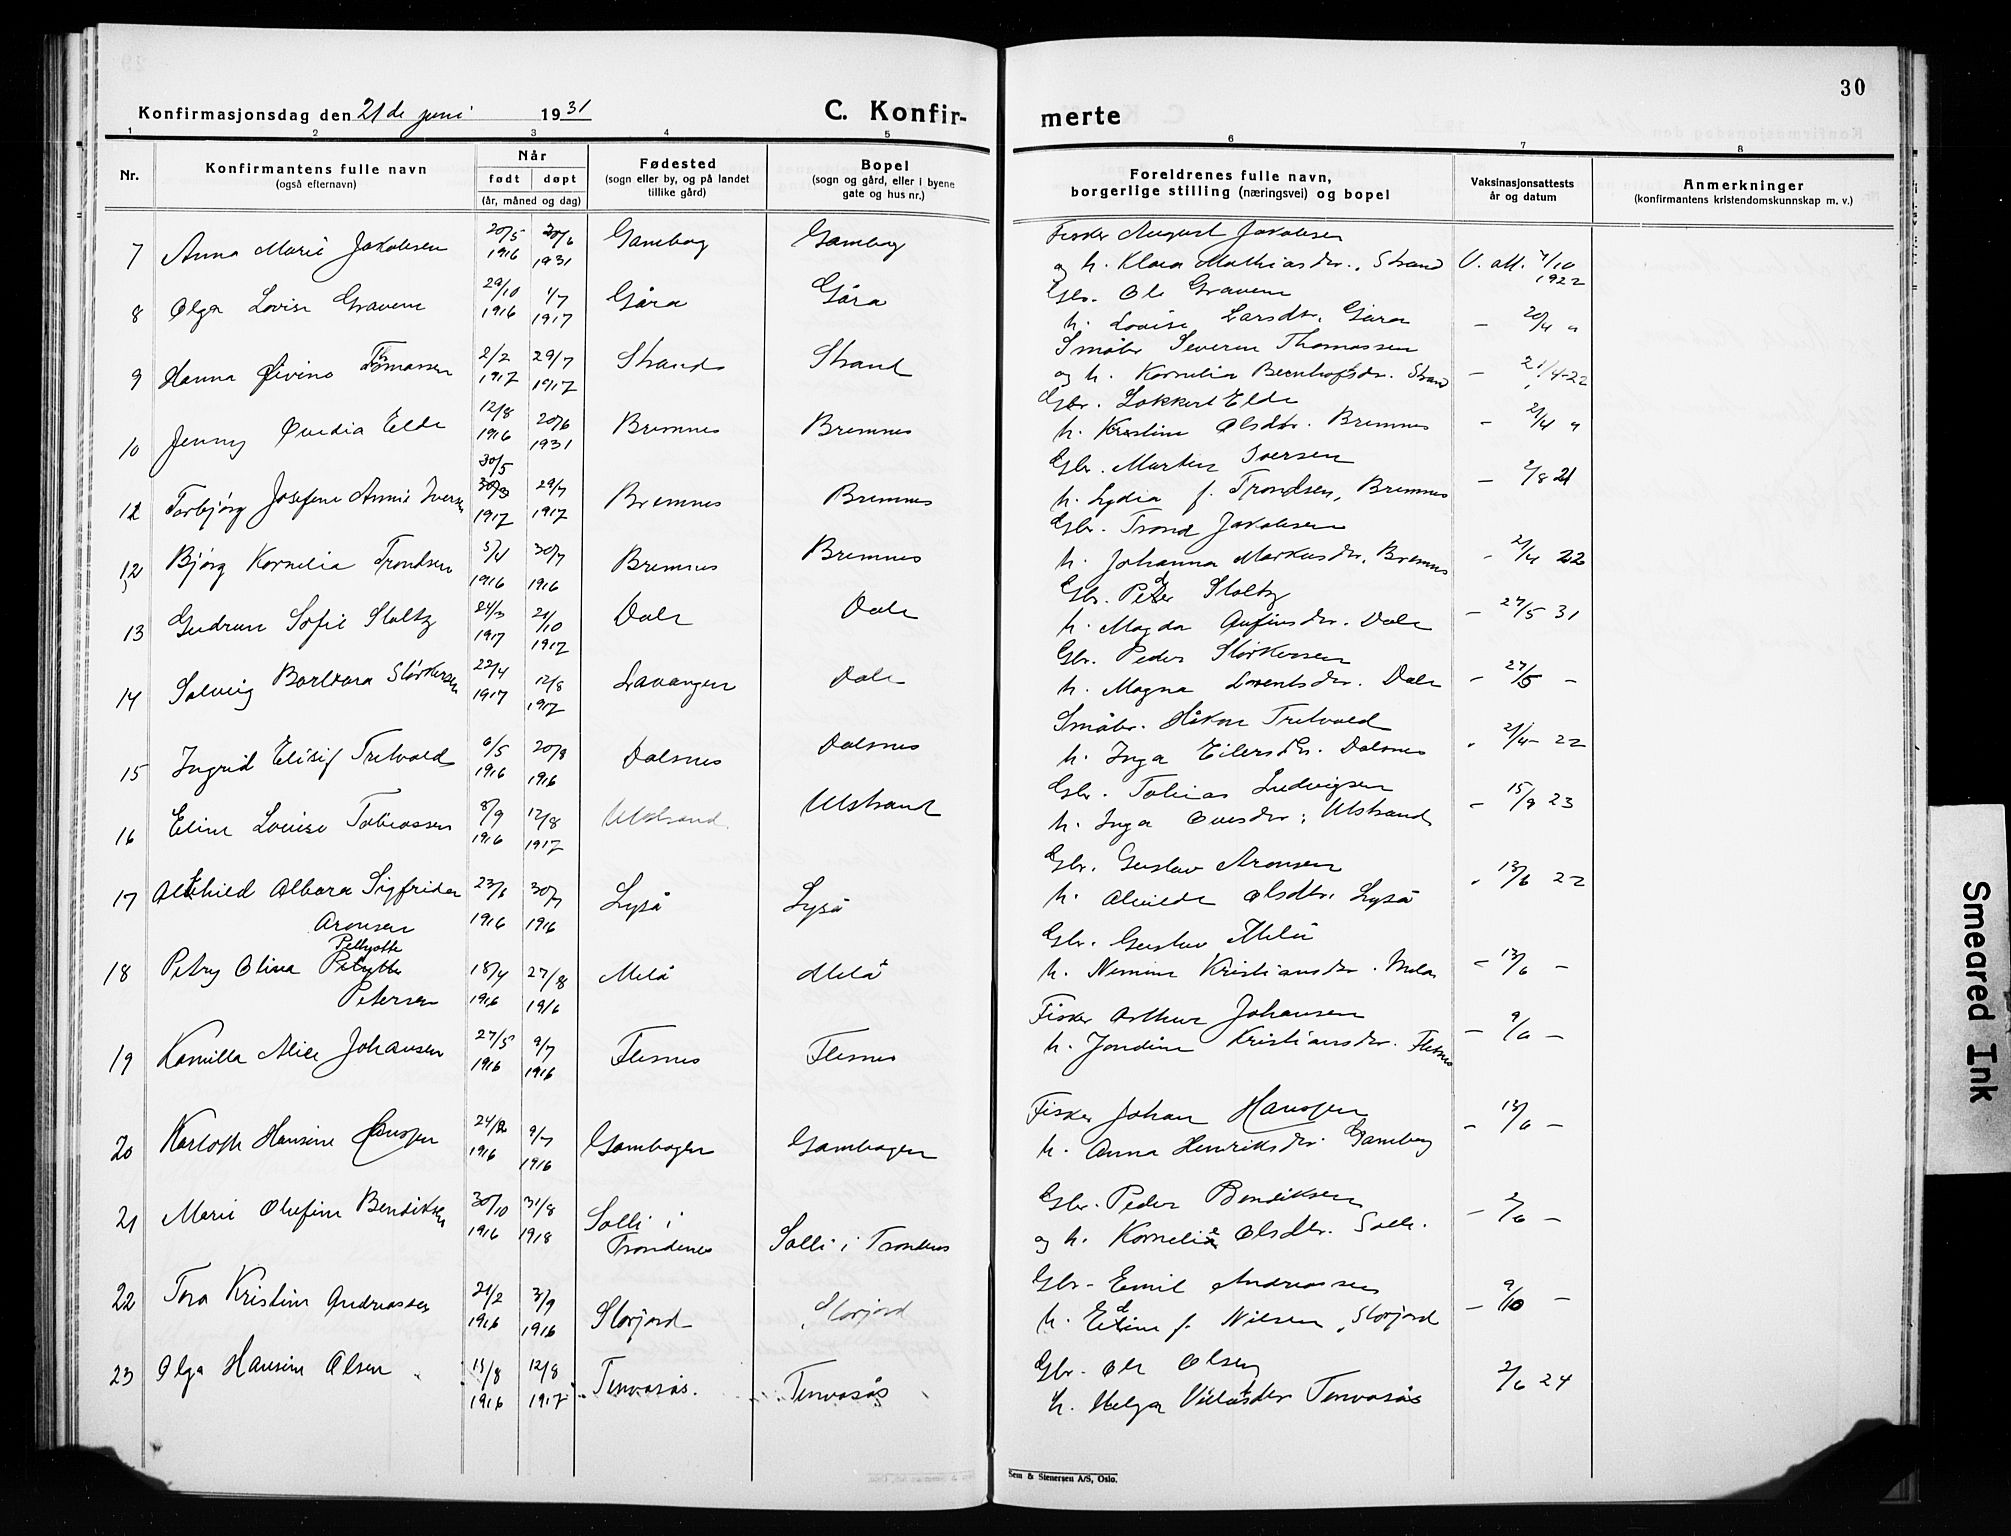 30
Konfirmasjonsdag den 21de juni 1931
C. Konfir-
merte
1 2 3 4 5 6 7 8
Nr.
Konfirmantens fulle navn
(også efternavn)
Når
født døpt
(år, måned og dag)
Fødested
(sogn eller by, og på landet
tillike gård)
Bopel
(sogn og gård, eller i byene
gate og hus nr.)
Foreldrenes fulle navn,
borgerlige stilling (næringsvei) og bopel
Vaksinasjonsattests
år og datum
Anmerkninger
(konfirmantens kristendomskunnskap m. v.)
7 Anna Marie Jakobsen 20/5 1916 20/6 1931 Gambog Gambog
Fisker August Jakobsen
og h. Klara Mathiasdtr., Strand V. att. 7/10 1922
8 Olga Lovise Gravem 29/10 1916 1/7 1917 Gåra Gåra
Gbr. Ole Gravem
h. Lovise Larsdtr. Gåra - 20/4 "
9 Hanna Øivine Tomassen 2/2 1917 29/7 1917 Strand Strand
Småbr. Severin Thomassen
og h. Kornelia Bernhofsdr. Strand - 21/4-22
10 Jenny Ovedia Elde 12/8 1916 20/6 1931 Bremnes Bremnes
Gbr. Lokkert Elde
h. Kristine Olsdtr. Bremnes - 21/4 "
11 Torbjørg Josefine Annie Iversen 30/5 1917 29/7 1917 Bremnes Bremnes
Gbr. Morten Iversen
h. Lydia f. Trondsen, Bremnes - 2/8 21
12 Bjørg Kornelia Trondsen 5/4 1916 30/7 1916 Bremnes Bremnes
Gbr. Trond Jakobsen
h. Johanna Markusdr. Bremnes - 21/4 22
13 Gudrun Sofie Stoltz 24/3 1917 21/10 1917 Dale Dale
Gbr. Peder Stoltz
h. Magda Anfinsdr. Dale - 27/5 31
14 Solveig Barbara Størkersen 22/4 1917 12/8 1917 Lavangen Dale
Gbr. Peder Størkersen
h. Magna Lorentsdr. Dale - 27/5 -
15 Ingrid Elisif Tretvold 6/5 1916 20/8 1916 Dalsnes Dalsnes
Småbr. Håkon Tretvold
h. Inga Eilersdtr. Dalsnes - 21/4 - 22
16 Eline Louise Tobiassen 8/9 1916 12/8 1917 Ulstrand Ulstrand
Gbr. Tobias Ludvigsen
h. Inga Ovesdtr; Ulstrand - 15/9 23
17 Althild Albara Sigfrida Aronsen 23/6 1916 30/7 1916 Lyså Lyså
Gbr. Gustav Aronsen
h. Alvilde Olsdtr. Lyså - 13/6 22
18 Petry Olina Petersen 18/4 1916 27/8 1916 Melå Melå
Gbr. Gustav Melå
h. Nemine Kristiansdr. Mela - 13/6 -
19 Kamilla Alice Johansen 27/5 1916 9/7 1916 Flesnes Flesnes
Fisker Arthur Johansen
h. Jondine Kristiansdr. Flesnes - 9/6 -
20 Karloth Hansine Hanssen 24/2 1916 9/7 1916 Gambogen Gambogen
Fisker Johan Hanssen
h. Anna Henriksdr. Gambog - 13/6 -
21 Marie Olufine Bendiksen 30/10 1916 31/8 1918 Solli i Trondenes Solli i Trondenes
Gbr. Peder Bendiksen
og h. Kornelie Olsdtr. Solli. - 2/6 -
22 Tora Kristine Andreassen 21/2 1916 3/9 1916 Storjord Storjord
Gbr. Emil Andreassen
h. Edine f. Nilsen, Storjord - 9/10 -
23 Olga Hansine Olsen 15/8 1916 12/8 1917 Tennvasås. Tennvasås
Gbr. Ole Olsen
h. Helga Tennvasås 2/6 24
Sem & Stenersen A/S, Oslo.
Smeared Ink